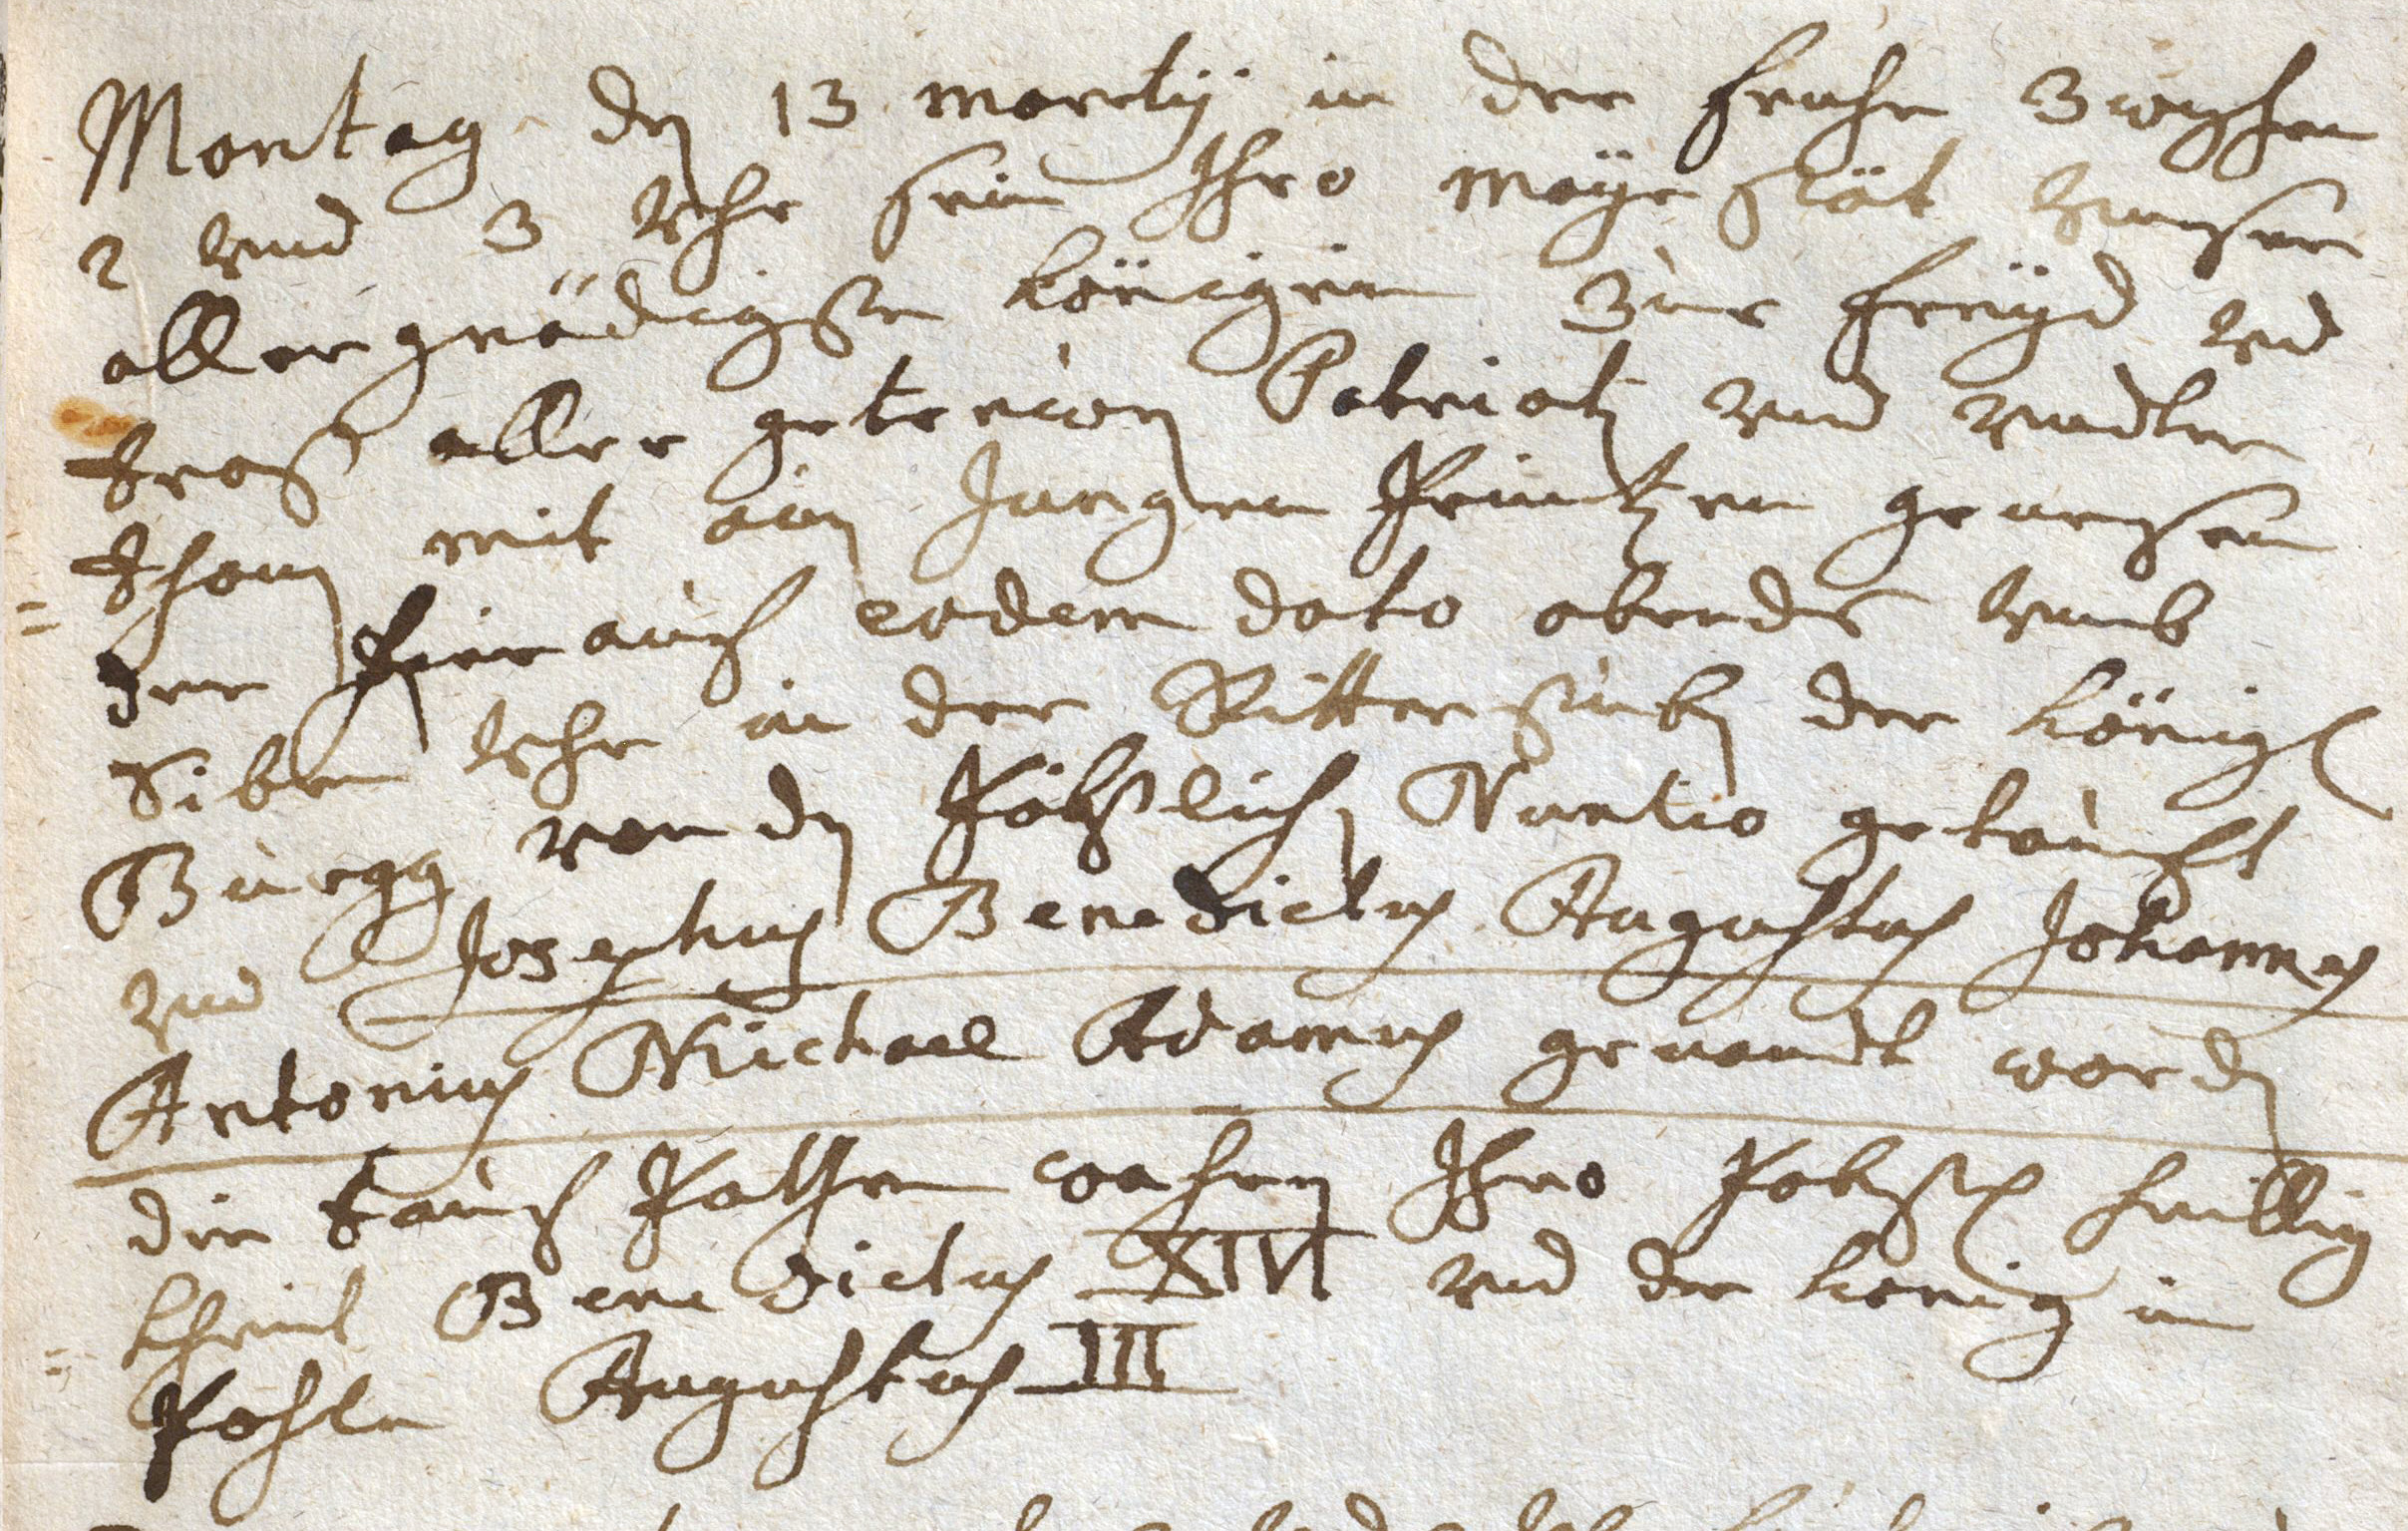 Montag den 13 martÿ in der fruhe zwischen
2 vnd 3 Vhr sein Ihro mayestät vnser
aller gnädigste königin zur freÿd vnd
trost aller getreuen Patrioten vnd vndter
thanen mit ein Jungen Printzen genesen
der hierauf eodem dato abends vmb
Siben Vhr in der Ritterstuben der königl
Burgg von den Päbstlichen Nuntio getaufft
vnd Josephus Benedictus Augustus Johannes
Antonius Michael Adamus genandt worden
die tauf Pathen wahren Ihro Pabstl heillig
kheit Benedictus XIV vnd der konig in
Pohln Augustus III